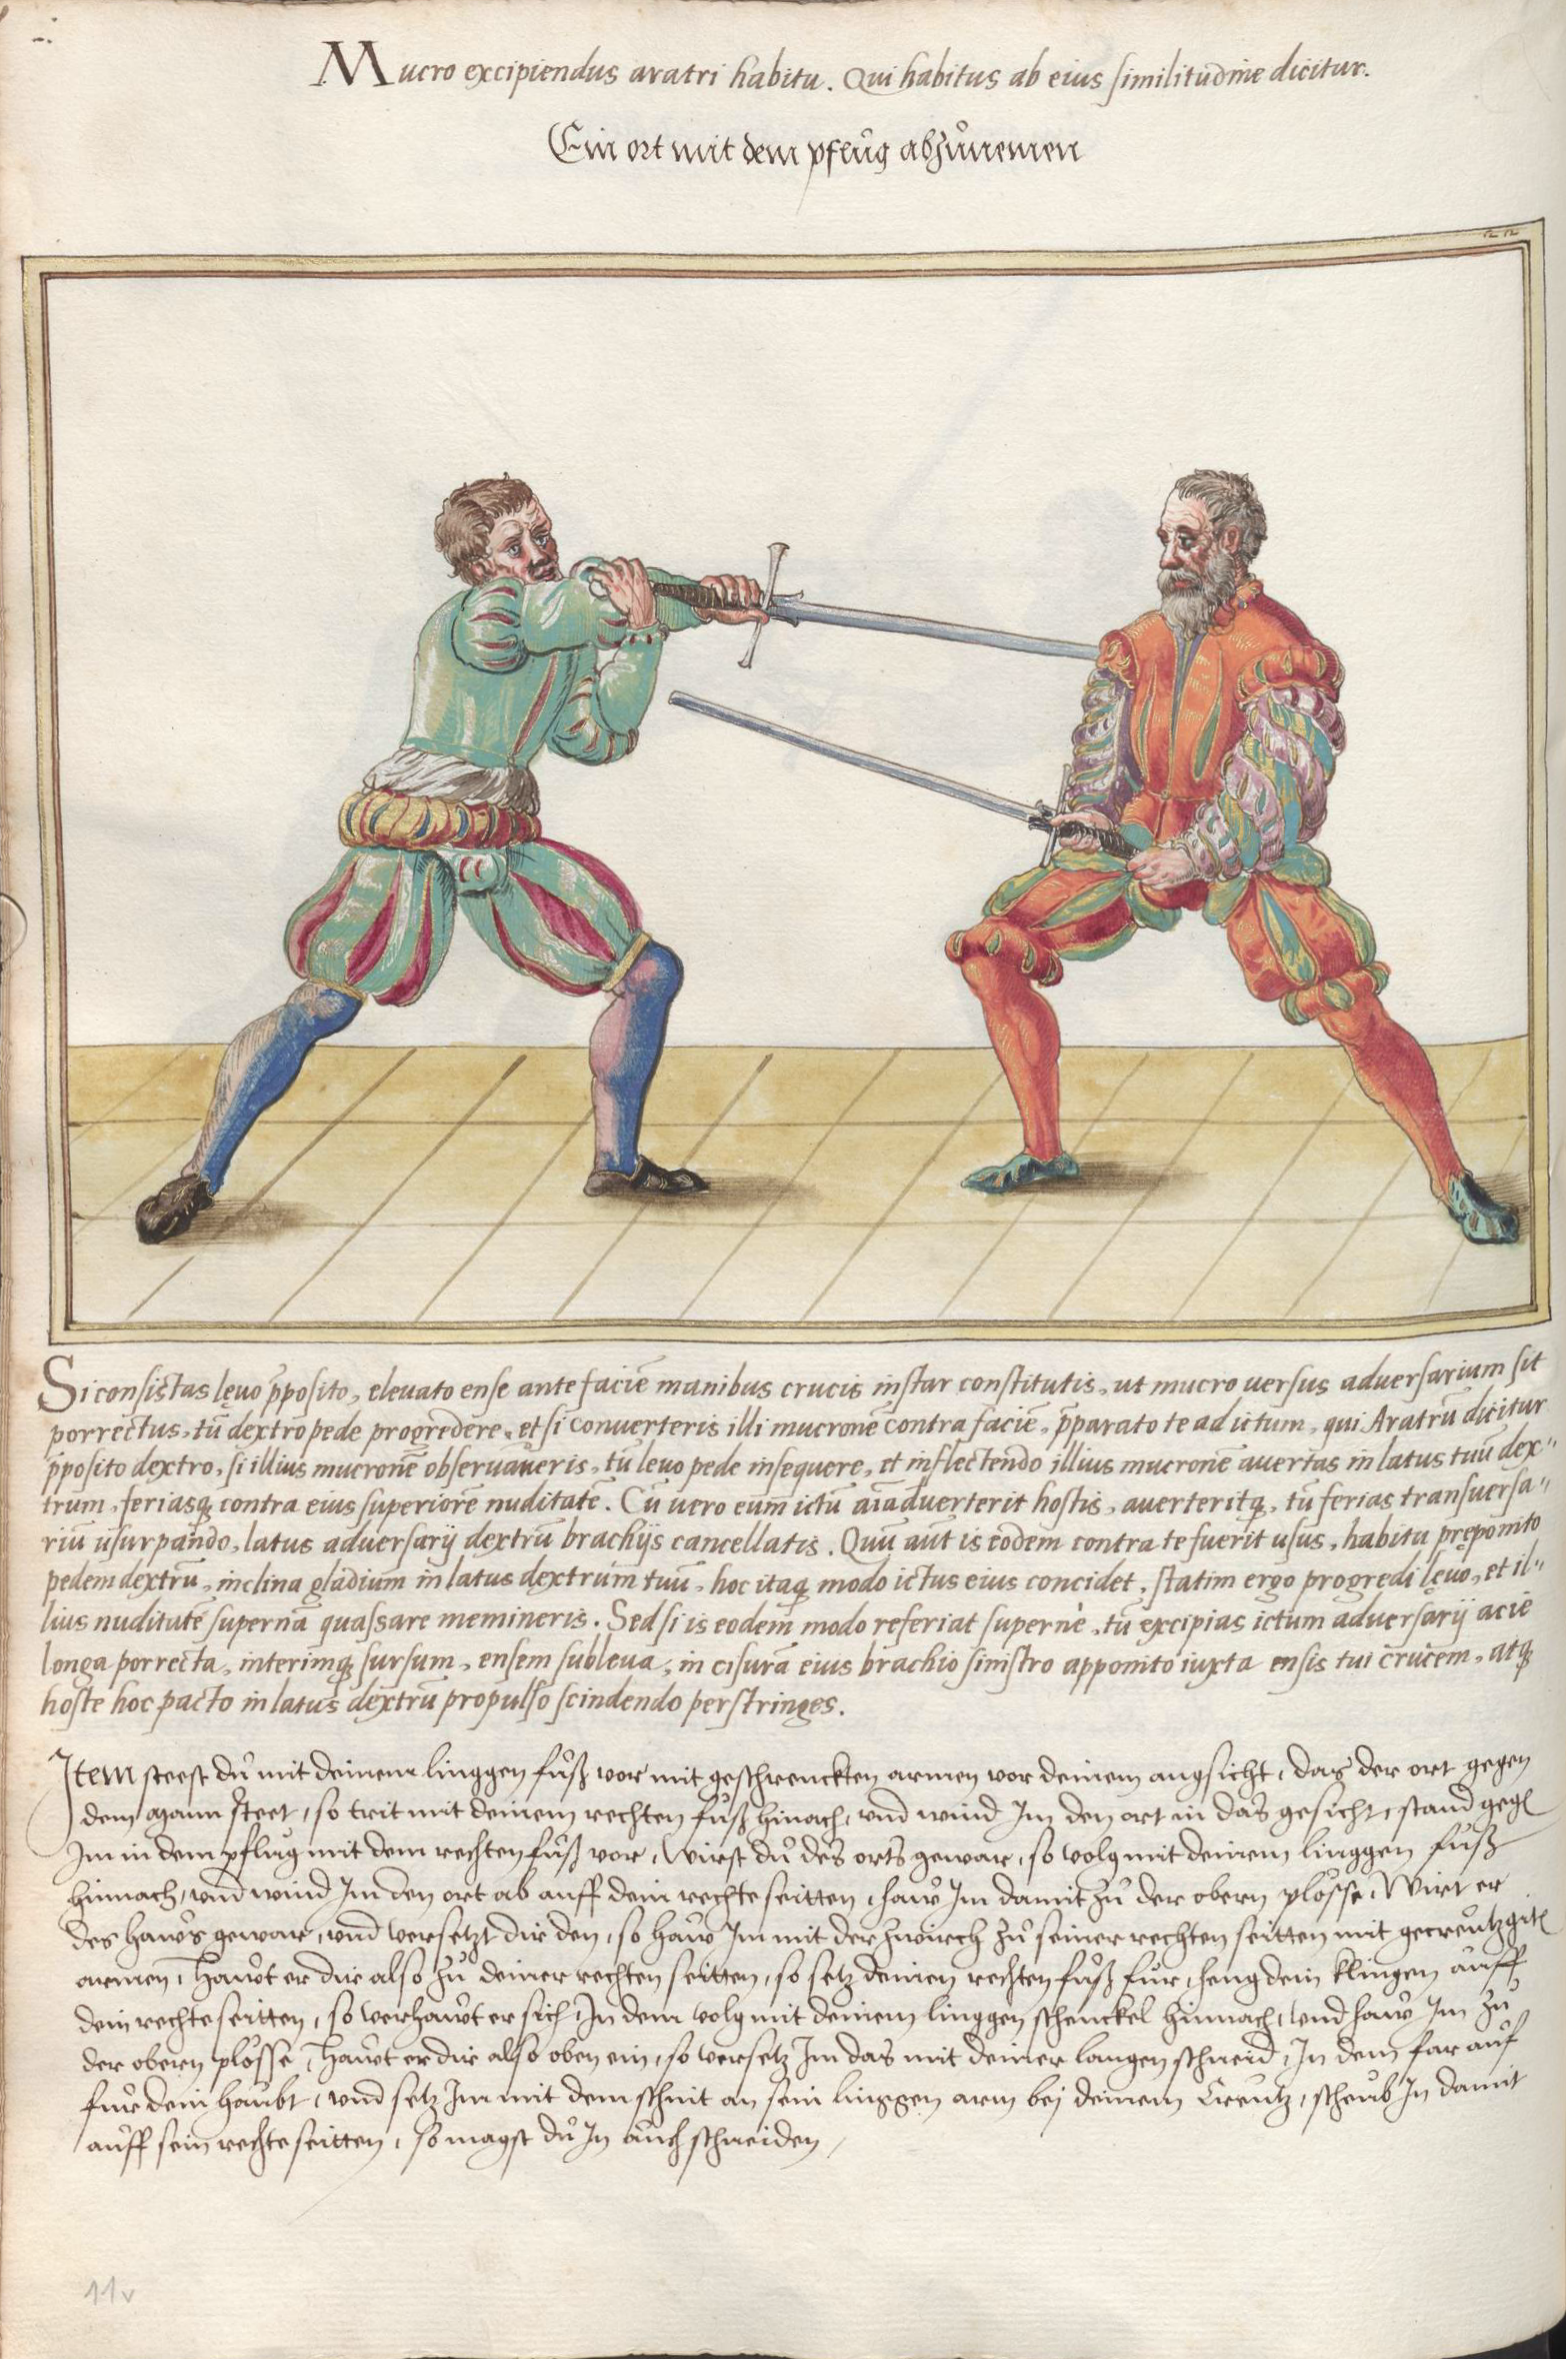 Mucro excipiendus aratri habitu. Qui habitus ab eius similitudine dicitur.
Ein ort mit dem pflůg abzůnemen
Si consistas lęvo p̄posito, elevato ense ante faciē manibus crucis instar constitutis, ut mucro versus adversarium sit
porrectus, tū dextro pede progredere, et si converteris illi mucronē contra faciē, p̄parato te ad ictum, qui Aratrū dicitur
p̄posito dextro, si illius mucronē observaveris, tū levo pede insequere, et inflectendo illius mucronē avertas in latus tuū dex"
trum, feriasq; contra eius superiorē nuditatē. Cū vero eum ictū aīadverterit hostis, averteritq;, tū ferias transversa"
riū usurpando, latus adversarij dextrū brachijs cancellatis. Quū aūt is eodem contra te fuerit usus, habitu pręponito
pedem dextrū, inclina gladium in latus dextrum tuū, hoc itaq; modo ictus eius concidet, statim ergo progredi lęvo, et il"
lius nuditatē supernā quassare memineris. Sed si is eodem modo referiat supernè, tū excipias ictum adversarij acie
longa porrecta, interimq; sursum, ensem subleva, in cisurā eius brachio sinistro apponito iuxta ensis tui crucem, atq;
hoste hoc pacto in latus dextrū propulso scindendo perstringes.
Item steest dů mit deinem linggen fůß vor mit geschrenckten armen vor deinem angsicht, das der ort gegen
dem mann steet, so trit mit deinem rechten fůß hinach, vnd wind Im den ort in das gesicht, stand gegē
Im in dem pflůg mit dem rechten fůß vor, wirst dů des orts gewar, so volg mit deinem linggen fůß
hinnach, vnd wind Im den ort ab auff dein rechte seitten, haw Im damit zů der obern plösse, Wirt er
des haws gewar, vnd versetzt dir den, so haw Im mit der zwirch zů seiner rechten seitten mit gecreutzgitē
armen, Hawt er dir also zů deiner rechten seitten, so setz deinen rechten fůß für, heng dein klingen auff
dein rechte seitten, so verhawt er sich, In dem volg mit deinem linggen schenckel hinnach, vnd haw Im zů
der obern plösse, Hawt er dir also oben ein, so versetz Im das mit deiner langen schneid, In dem far auf
für dein haubt, vnd setz Im mit dem schnit an sein linggen arm bej deinem Creutz, scheub In damit
auff sein rechte seitten, so magst dů In auch schneiden
11v